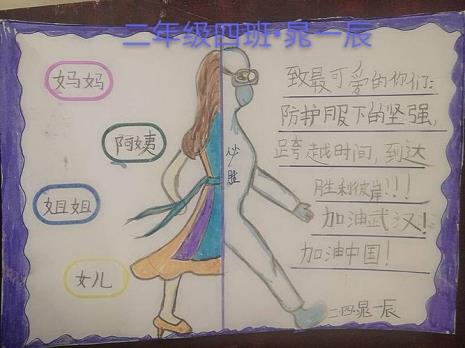 二年级四班·晁一辰
妈妈
阿姨
姐姐
女儿
必胜
致最可爱的你们:
防护服下的坚强,
跨越时间,到达
胜利彼岸!!!
加油武汉!
加油中国!
二.四.晁一辰